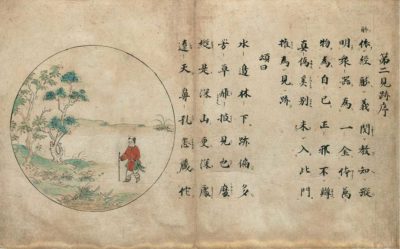 第二見跡序
依經解義閱教知蹤
明衆器為一金体萬
物為自己正邪不辨
真偽奚別未入此門
権為見跡
頌曰
水邊林下跡偏多
芳草離披見也麼
縦是深山更深處
遼天鼻孔怎藏他